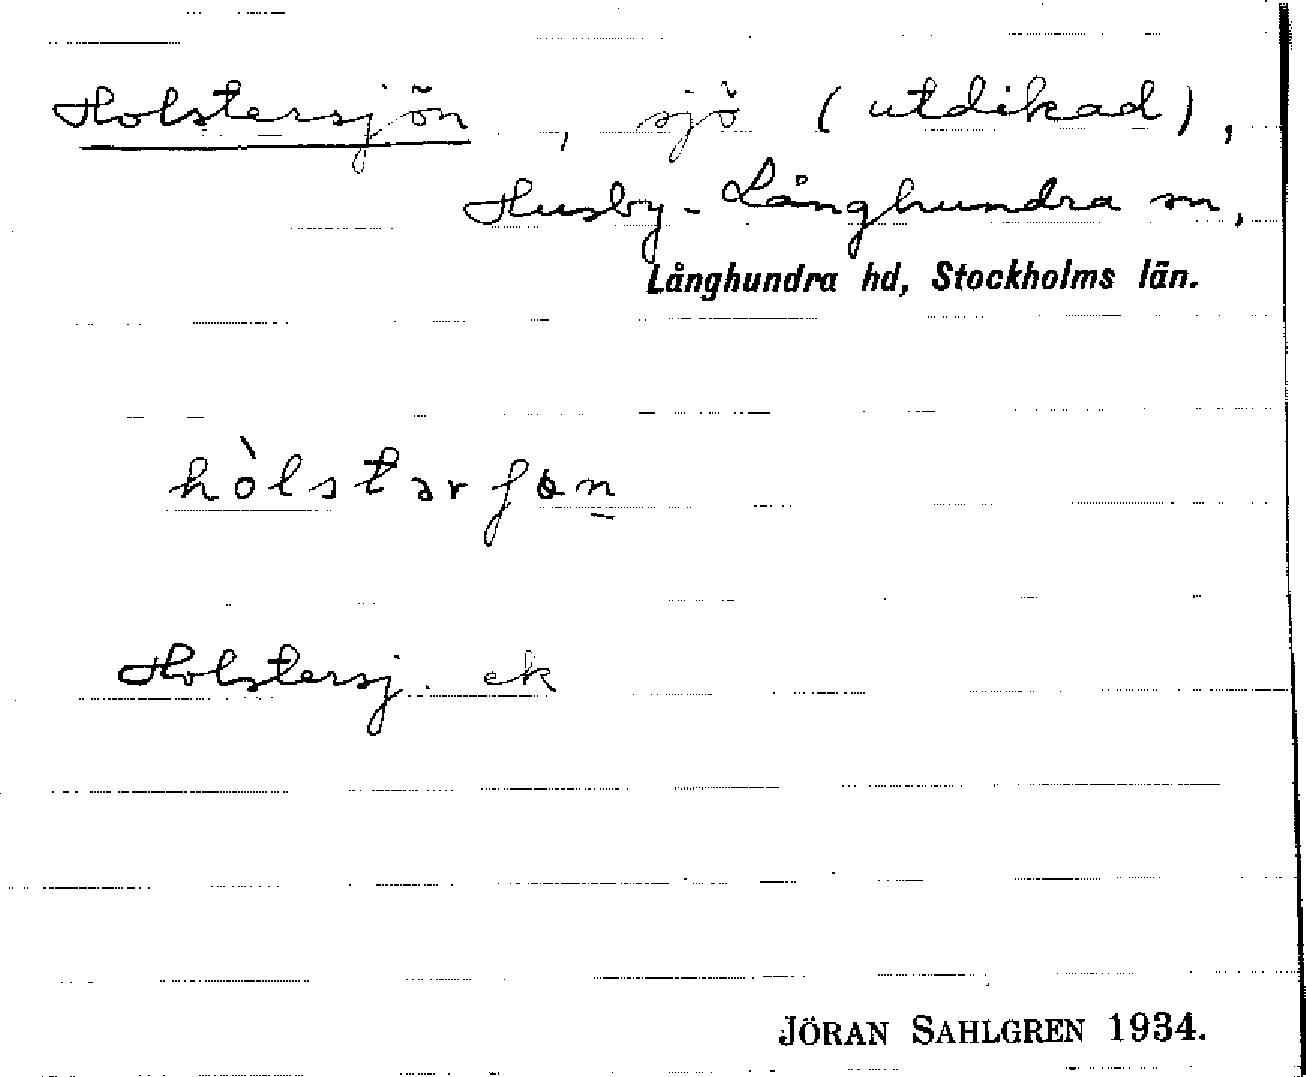 Holstersjön, sjö (utdikad),
Husby-Långhundra sn,
Långhundra hd, Stockholms län.
hòlstərʃɵn̠
Holstersj. ek
JÖRAN SAHLGREN 1934.